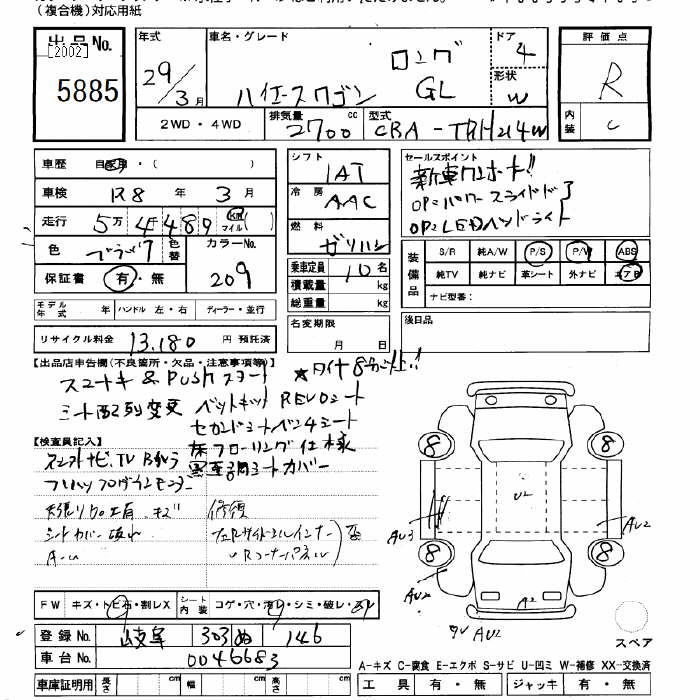 (複合機)対応用紙
出品No.
[2002]
5885
年式
29/3月
車名・グレード
ハイエースワゴン
ロング
GL
ドア
4
形状
W
評価点
R
内装
C
2WD・4WD
排気量
2700cc
型式
CBA-TRH214W
車歴
車検 R8年3月
走行 5万4千489 km マイル
色 ブラック
色替
カラーNo.
209
保証書 有・無
シフト
1AT
冷房
AAC
燃料
ガソリン
乗車定員 10名
積載量 kg
総重量 kg
セールスポイント
新車ワンオーナー!!
OP=パワースライドドア
OP=LEDヘッドライト
装備品
S/R 純A/W P/S P/W ABS
純TV 純ナビ 革シート 外ナビ エアB
ナビ型番:
モデル年式 年
ハンドル 左・右
ディーラー・並行
リサイクル料金 13,180円 預託済
名変期限 月 日
後日品
【出品店申告欄(不良箇所・欠品・注意事項等)】
スマートキー&PUSHスタート
★タイヤ8分以上!!
シート配列変更
ベットキット REVOシート
セカンドシートベンチシート
床フローリング仕様
黒革調シートカバー
【検査員記入】
フリップダウンモニター
天張り加工有 キズ
修復
シートカバー
8
8
8
8
U2
AU3
AU2
AU2
A2
AU2
スペア
FW
キズ・トビ石・割レX
シート内装
コゲ・穴・汚レ・シミ・破レ・スレ
登録No. 岐阜 303 ぬ 146
車台No. 0046683
A-キズ C-腐食 E-エクボ S-サビ U-凹ミ W-補修 XX-交換済
車庫証明用 長さ cm 幅 cm 高さ cm
工具 有・無
ジャッキ 有・無